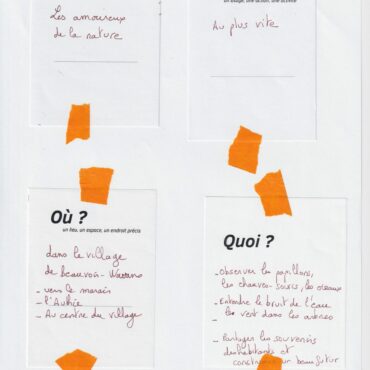 Les amoureux
de la nature
un usage, une action, une activité
Au plus vite
Où ?
un lieu, un espace, un endroit précis
dans le village
de Beauvoir-Wavans
- vers le marais
- l'Authie
- Au centre du village
Quoi ?
- observer les papillons,
les chauves-souris, les oiseaux
- Entendre le bruit de l'eau
le vent dans les arbres
- Partager les souvenirs
des habitants et
construire un beau futur